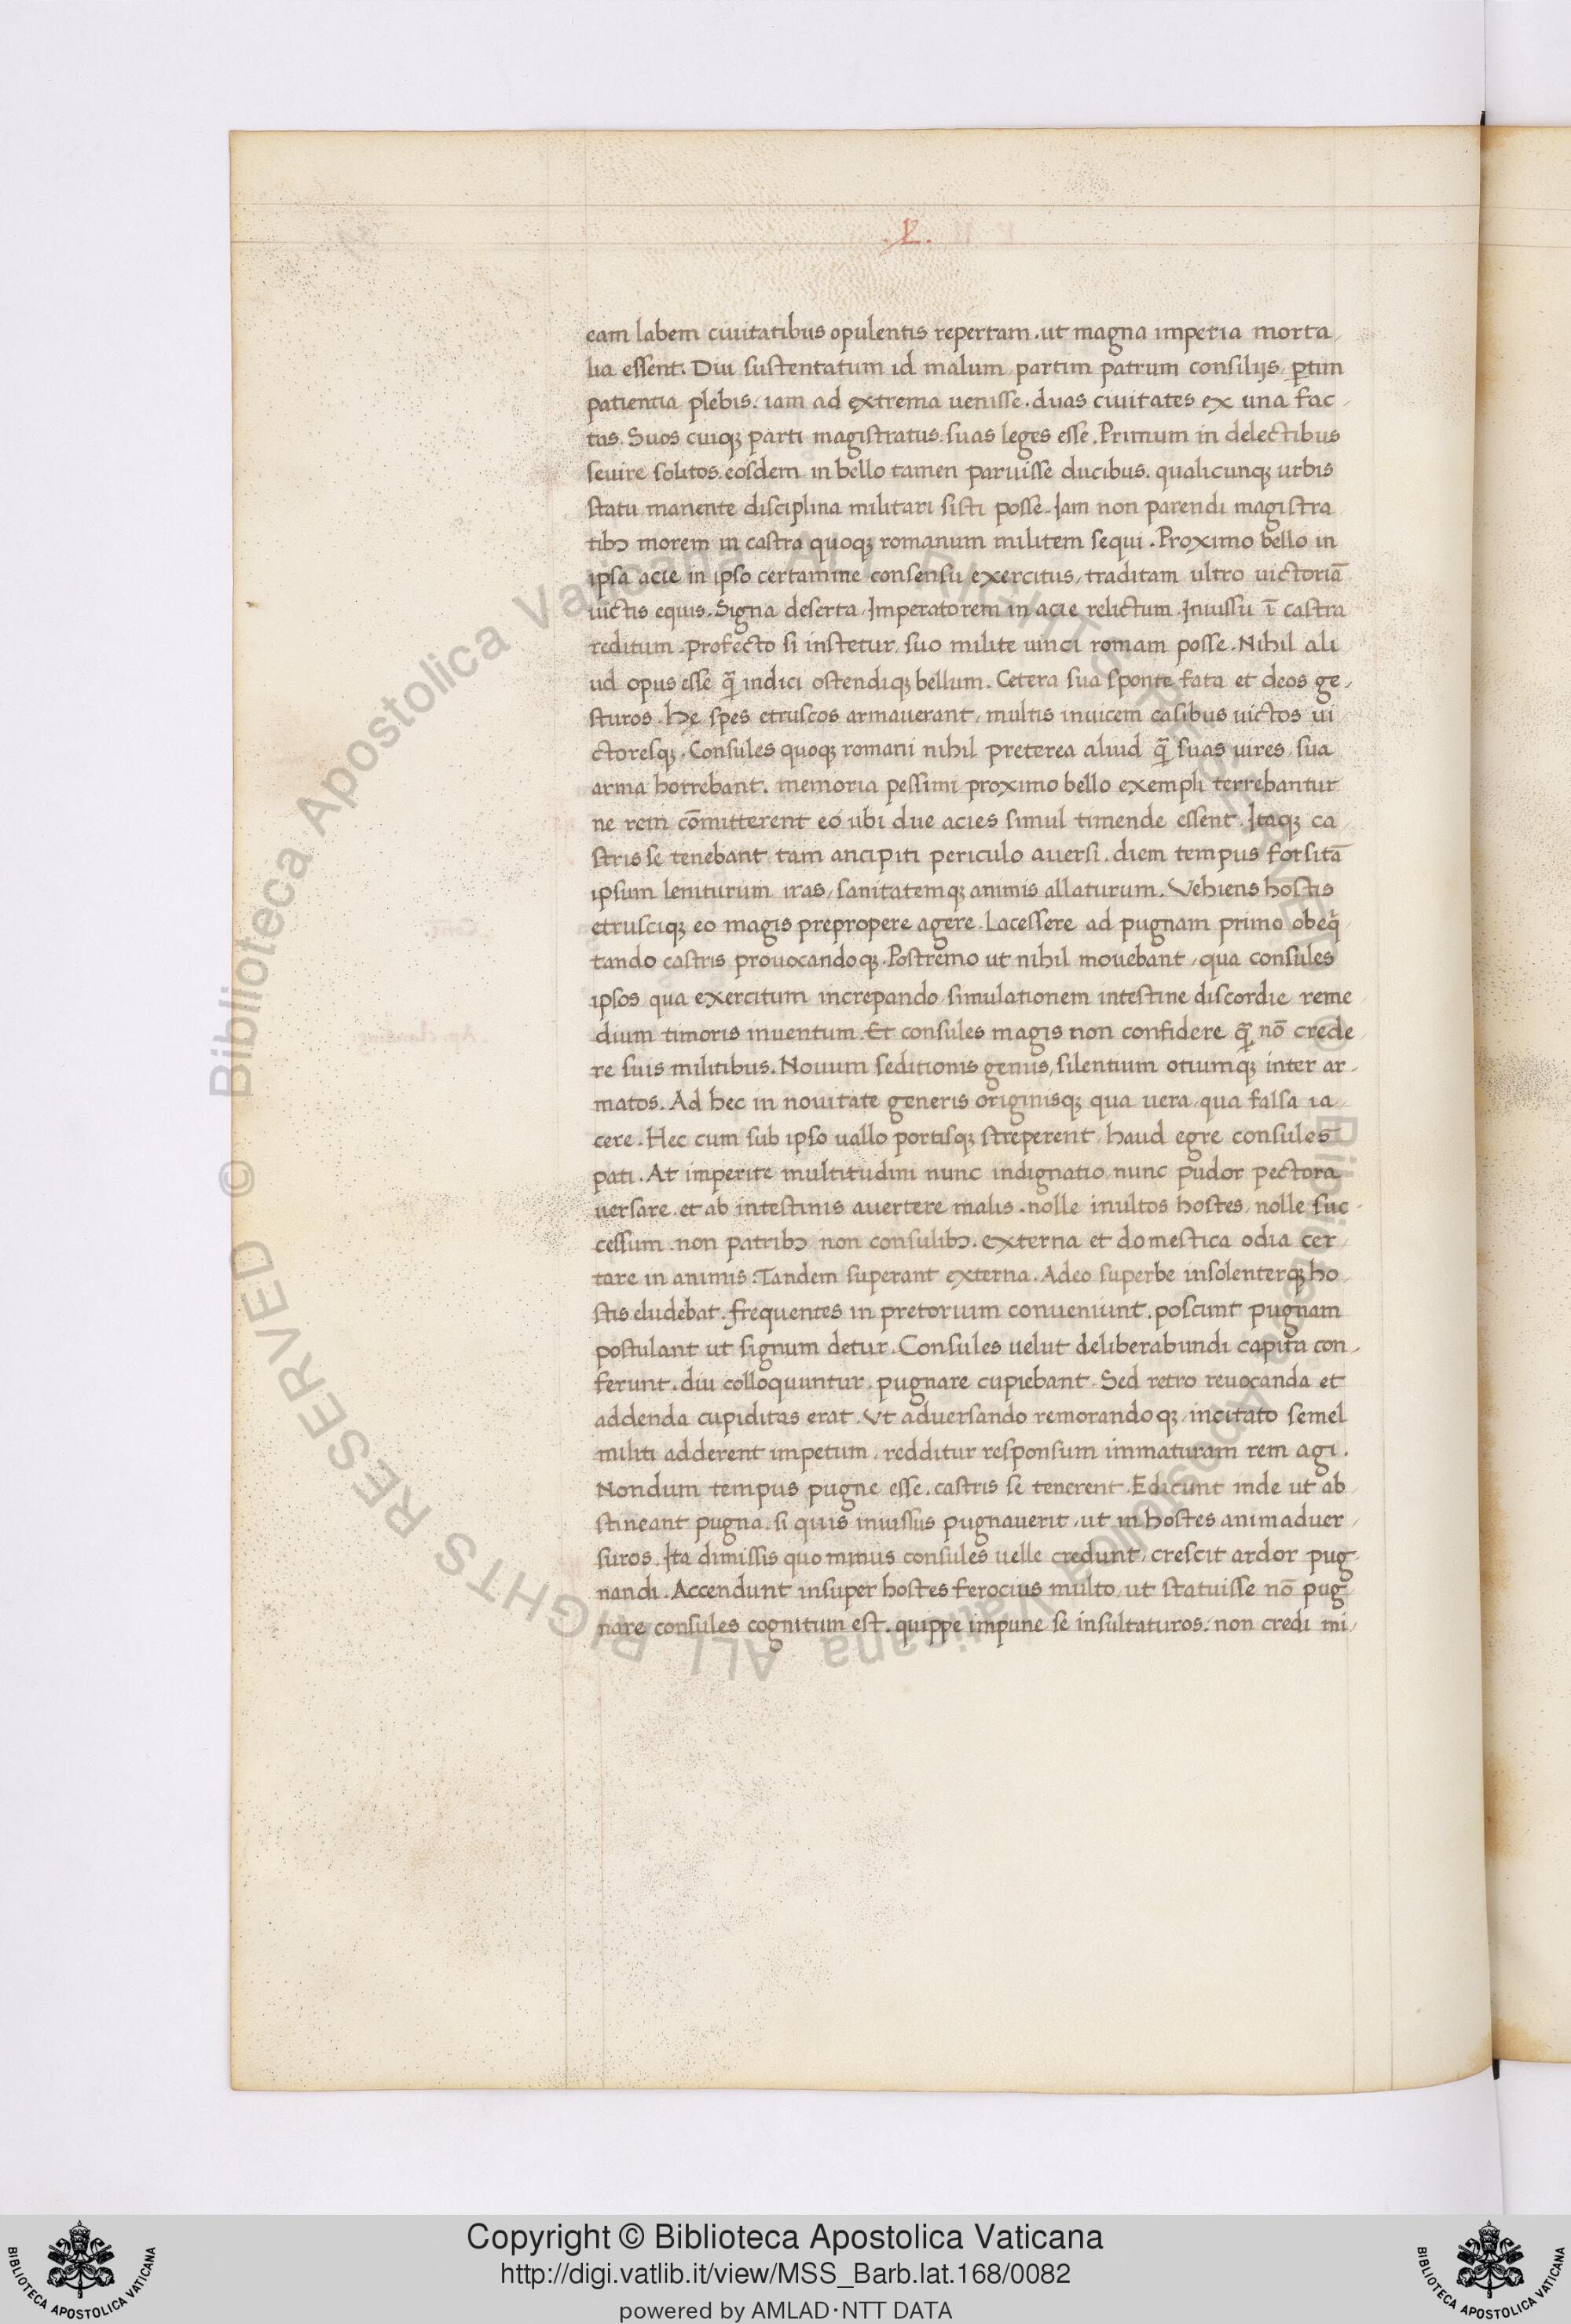 .L.
eam labem ciuitatibus opulentis repertam. ut magna imperia morta,
lia essent. Diu sustentatum id malum, partim patrum consilijs, ꝑtim
patientia plebis. iam ad extrema uenisse. duas ciuitates ex una fac,
tas. Suos cuiqꝫ parti magistratus. suas leges esse. Primum in delectibus
seuire solitos. eosdem in bello tamen paruisse ducibus. qualicunqꝫ urbis
statu manente disciplina militari sisti posse. Iam non parendi magistra
tibꝫ morem in castra quoqꝫ romanum militem sequi. Proximo bello in
ipsa acie in ipso certamine consensu exercitus, traditam ultro uictoriā
uictis equis. Signa deserta, Imperatorem in acie relictum. Iniussu ī castra
reditum. profecto si instetur, suo milite uinci romam posse. Nihil ali
ud opus esse ꝗ̄ indici ostendiqꝫ bellum. Cetera sua sponte fata et deos ge,
sturos. Hę spes etruscos armauerant, multis inuicem casibus uictos ui
ctoresqꝫ. Consules quoqꝫ romani nihil preterea aliud ꝗ̄ suas uires, sua
arma horrebant. memoria pessimi proximo bello exempli terrebantur
ne rem cōmitterent eo ubi due acies simul timende essent. Itaqꝫ ca
stris se tenebant tam ancipiti periculo auersi. diem tempus forsitā
ipsum leniturum iras, sanitatemqꝫ animis allaturum. Vehiens hostis
etrusciqꝫ eo magis prepropere agere. Lacessere ad pugnam primo obeq̄
tando castris prouocandoqꝫ. Postremo ut nihil mouebant, qua consules
ipsos qua exercitum increpando, simulationem intestine discordie reme
dium timoris inuentum. Et consules magis non confidere ꝗ̄ nō crede
re suis militibus. Nouum seditionis genus, silentium otiumqꝫ inter ar,
matos. Ad hec in nouitate generis originisqꝫ qua uera, qua falsa ia,
cere. Hec cum sub ipso uallo portisqꝫ streperent, haud egre consules
pati. At imperite multitudini nunc indignatio, nunc pudor pectora
uersare. et ab intestinis auertere malis. nolle inultos hostes, nolle suc,
cessum. non patribꝫ non consulibꝫ. externa et domestica odia cer,
tare in animis. Tandem superant externa. Adeo superbe insolenterqꝫ ho,
stis eludebat. frequentes in pretorium conueniunt. poscunt pugnam
postulant ut signum detur. Consules uelut deliberabundi capita con,
ferunt. diu colloquuntur. pugnare cupiebant. Sed retro reuocanda et
addenda cupiditas erat. Vt aduersando remorandoqꝫ, incitato semel
militi adderent impetum, redditur responsum immaturam rem agi.
Nondum tempus pugne esse. castris se tenerent. Edicunt inde ut ab
stineant pugna. si quis iniussus pugnauerit, ut in hostes animaduer,
suros. Ita dimissis quo minus consules uelle credunt, crescit ardor pug
nandi. Accendunt insuper hostes ferocius multo, ut statuisse nō pug
nare consules cognitum est. quippe impune se insultaturos. non credi mi,
© Biblioteca Apostolica Vaticana ALL RIGHTS RESERVED
© Biblioteca Apostolica Vaticana ALL RIGHTS RESERVED
BIBLIOTECA APOSTOLICA VATICANA
Copyright © Biblioteca Apostolica Vaticana
http://digi.vatlib.it/view/MSS_Barb.lat.168/0082
powered by AMLAD·NTT DATA
BIBLIOTECA APOSTOLICA VATICANA